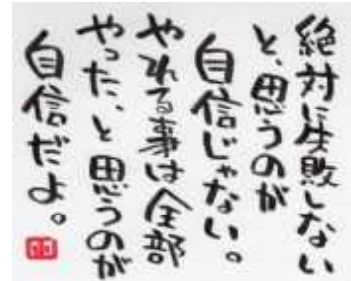 絶対に失敗しない
と、思うのが
自信じゃない。
やれる事は全部
やった、と思うのが
自信だよ。